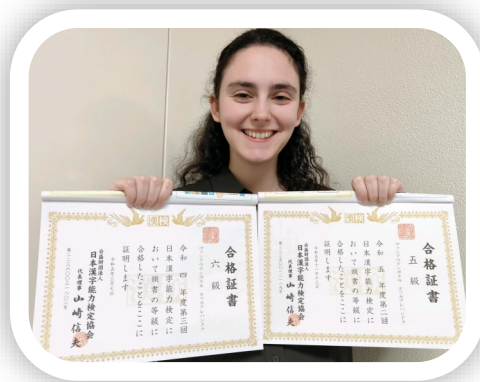 漢検
合格証書
六級
令和 四 年度第三回
日本漢字能力検定に
おいて頭書の等級に
合格したことをここに
証明します
公益財団法人
日本漢字能力検定協会
代表理事 山崎信夫
漢検
合格証書
五級
令和 五 年度第二回
日本漢字能力検定に
おいて頭書の等級に
合格したことをここに
証明します
公益財団法人
日本漢字能力検定協会
代表理事 山崎信夫